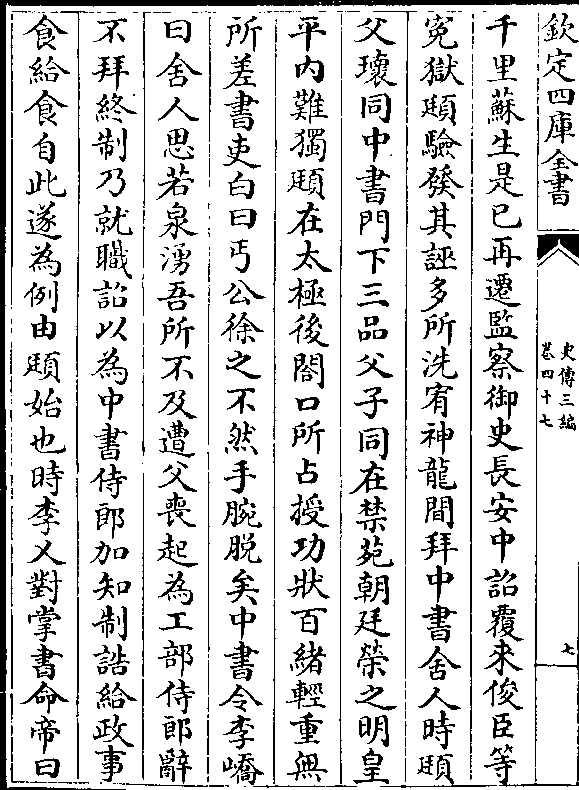 欽定四庫全書
史傳三編
卷四十七
七
千里蘇生是已再遷監察御史長安中詔覆来俊臣等
寃獄頲驗發其誣多所洗宥神龍間拜中書舍人時頲
父瓌同中書門下三品父子同在禁苑朝廷榮之明皇
平内難獨頲在太極後閤口所占授功狀百緒輕重無
所差書吏白曰丐公徐之不然手腕脱矣中書令李嶠
曰舍人思若泉湧吾所不及遭父喪起為工部侍郎辭
不拜終制乃就職詔以為中書侍郎加知制誥給政事
食給食自此遂為例由頲始也時李乂對掌書命帝曰